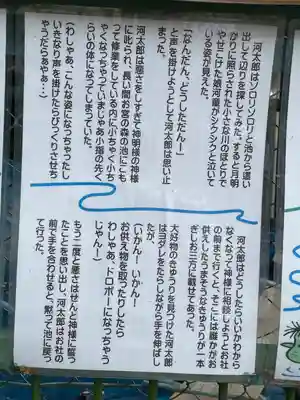 河太郎はソロリソロリと池から這い
出して辺りを探してみた。すると月明
かりに照らされた小さな川のほとりで
やせこけた娘河童がシクシクと泣いて
いる姿が見えた。
(なんだん、どうしただんー)
と声を掛けようとして河太郎は思い止
まった。
河太郎は悪さをしすぎて神明様の神様
に叱られ、長い間お宮の森の池にこも
って修業をしている内に小ちゃく小ち
ゃくなっちゃっていまじゃあ小指の先く
らいの体になってしまっていた。
(わしゃあ、こんな姿になっちゃったし
いきなり声を掛けたらびっくりさせち
ゃうだらあやぁ…)
河太郎はどうしたらいいかわから
なくなって神様に相談しようとお社
の前まで行くと、そこには誰かがお
供えしたうまそうなきゅうりが一本
ぎしお三方に載せてあった。
大好物のきゅうりを見つけた河太郎
はヨダレをたらしながら手を伸ばし
たが、
(いかんー! いかんー!
お供え物を取ったりしたら
わしゃあ、ドロボーになっちゃう
じゃんー)
もう二度と悪さはせんと神様と誓っ
たことを思い出し、河太郎はお社の
前で手を合わせると、黙って池に戻っ
て行った。